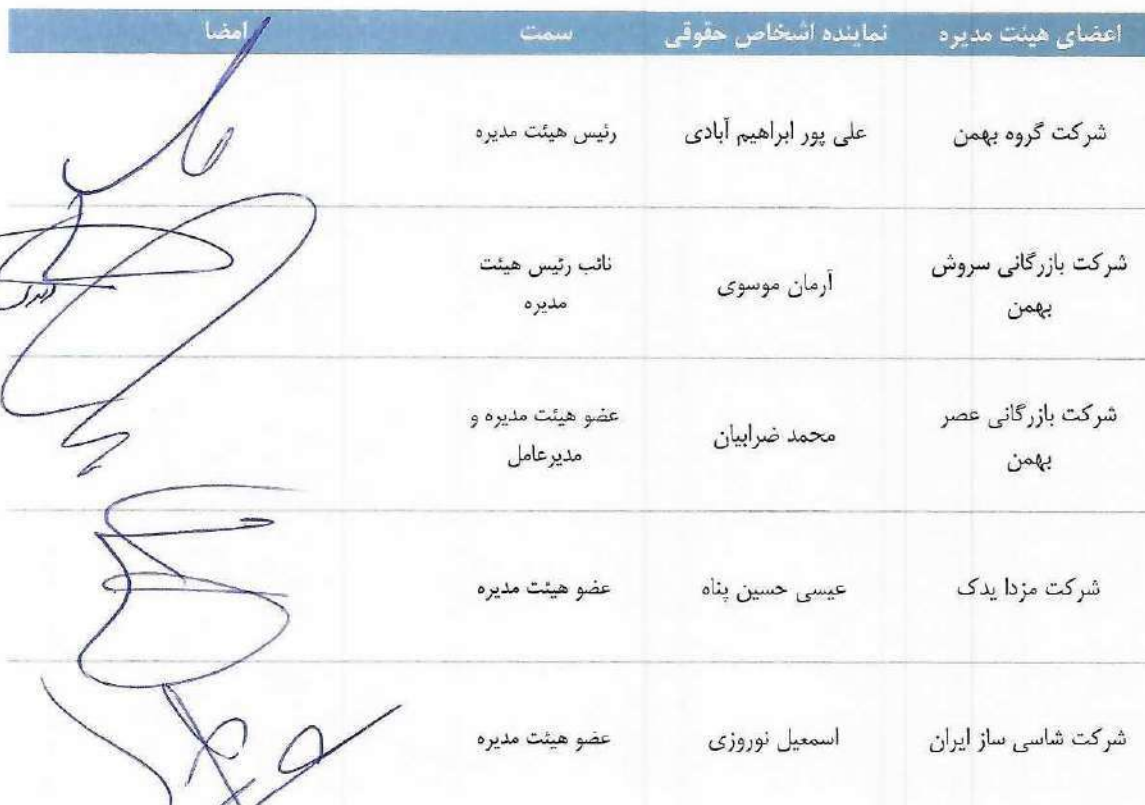 اعضای هیئت مدیره نماینده اشخاص حقوقی سمت امضا
شرکت گروه بهمن علی پور ابراهیم آبادی رئیس هیئت مدیره
شرکت بازرگانی سروش آرمان موسوی نائب رئیس هیئت
بهمن مدیره
شرکت بازرگانی عصر محمد ضرابیان عضو هیئت مدیره و
بهمن مدیرعامل
شرکت مزدا یدک عیسی حسین پناه عضو هیئت مدیره
شرکت شاسی ساز ایران اسمعیل نوروزی عضو هیئت مدیره